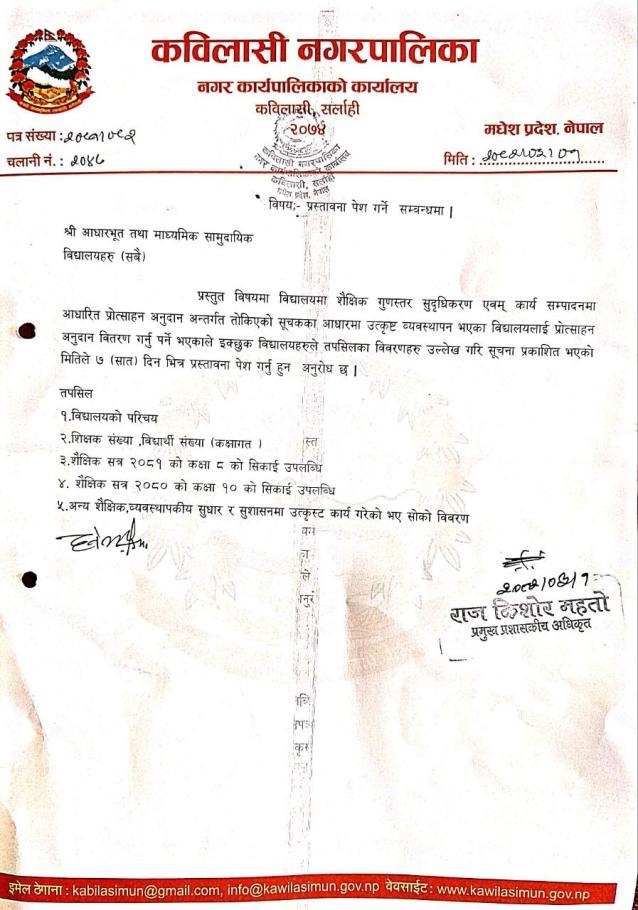 कविलासी नगरपालिका
नगर कार्यपालिकाको कार्यालय
कविलासी, सर्लाही
२०७४
मधेश प्रदेश, नेपाल
पत्र संख्या : २०८१०८२
चलानी नं. :
मिति :
कविलासी नगरपालिका
नगर कार्यपालिकाको कार्यालय
कविलासी, सर्लाही
मधेश प्रदेश, नेपाल
विषय:- प्रस्तावना पेश गर्ने सम्बन्धमा |
श्री आधारभूत तथा माध्यमिक सामुदायिक
विद्यालयहरु (सबै)
प्रस्तुत विषयमा विद्यालयमा शैक्षिक गुणस्तर सुदृधिकरण एवम् कार्य सम्पादनमा
आधारित प्रोत्साहन अनुदान अन्तर्गत तोकिएको सूचकका आधारमा उत्कृष्ट व्यवस्थापन भएका विद्यालयलाई प्रोत्साहन
अनुदान वितरण गर्नु पर्ने भएकाले इक्छुक विद्यालयहरुले तपसिलका विवरणहरु उल्लेख गरि सूचना प्रकाशित भएको
मितिले ७ (सात) दिन भित्र प्रस्तावना पेश गर्नु हुन अनुरोध छ |
तपसिल
१.विद्यालयको परिचय
२.शिक्षक संख्या ,विद्यार्थी संख्या (कक्षागत )
३.शैक्षिक सत्र २०८१ को कक्षा ८ को सिकाई उपलब्धि
४. शैक्षिक सत्र २०८० को कक्षा १० को सिकाई उपलब्धि
५.अन्य शैक्षिक,व्यवस्थापकीय सुधार र सुशासनमा उत्कृस्ट कार्य गरेको भए सोको विवरण
राज किशोर महतो
प्रमुख प्रशासकीय अधिकृत
इमेल ठेगाना : kabilasimun@gmail.com, info@kawilasimun.gov.np वेवसाईट: www.kawilasimun.gov.np